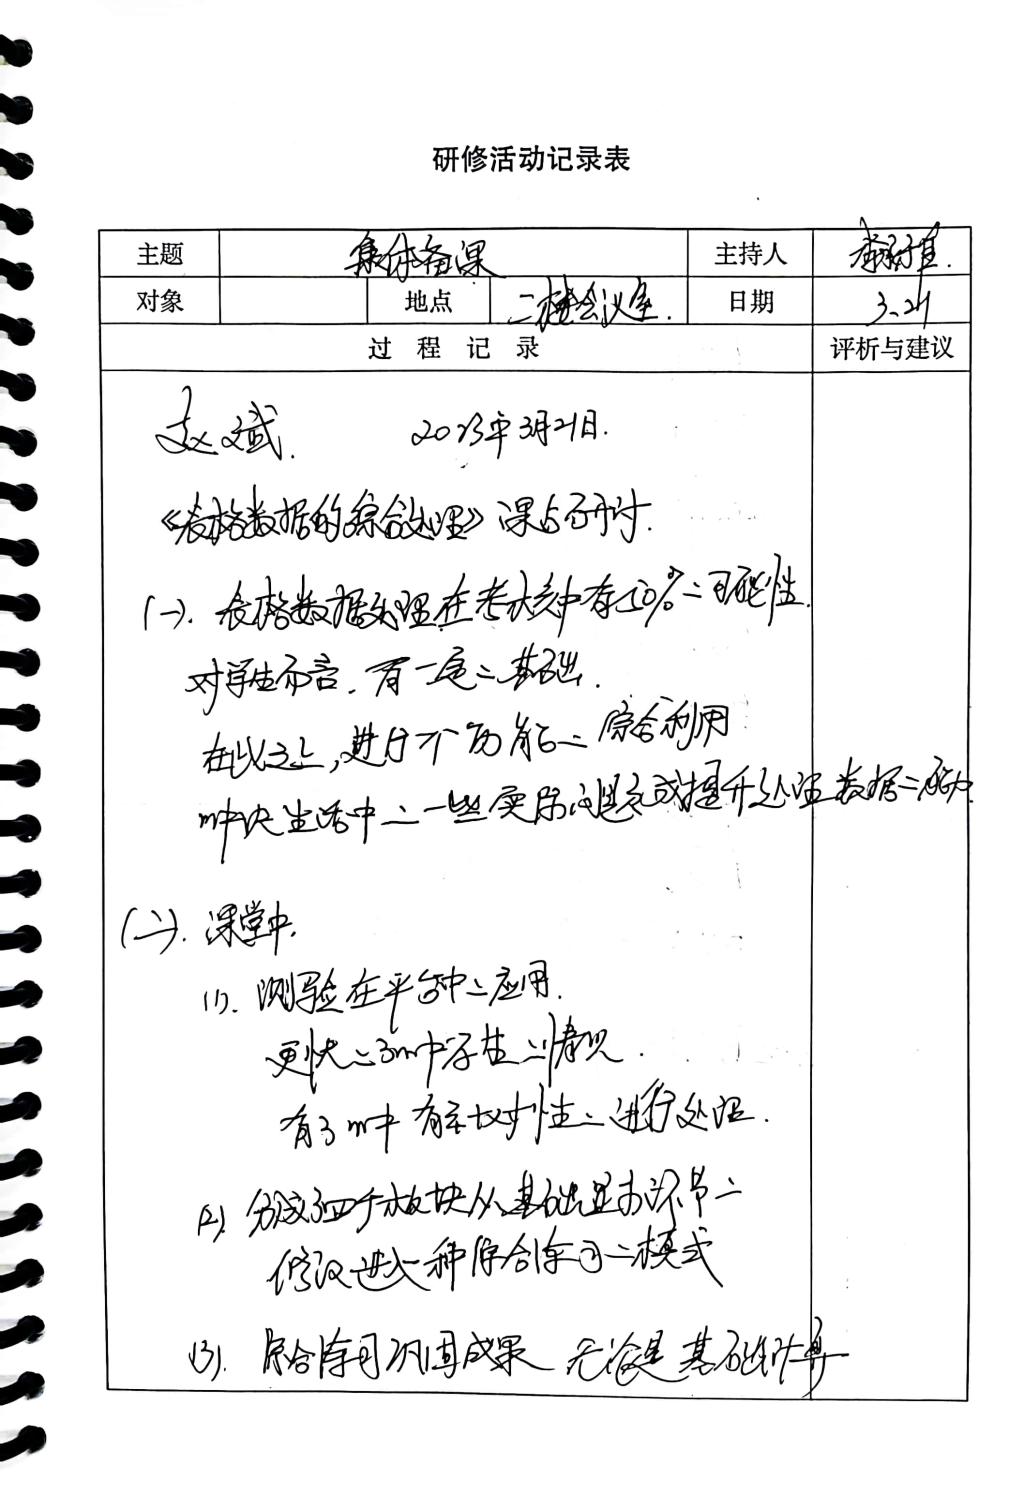 研修活动记录表
主题 集体备课 主持人
对象 地点 二楼会议室. 日期 3.21
过 程 记 录 评析与建议
赵斌. 2023年3月21日.
《表格数据的综合处理》课占研讨.
(一). 表格数据处理在考试中有50%二可能性.
对学生而言.有一定二基础.
在此之上,进行下 功能二综合利用
解决生活中二一些实际问题 或提升处理数据二能力.
(二). 课堂中.
(1). 测验在平台中二应用.
更快二了解学生二情况.
有了解 有针对性二进行处理.
(2). 分成了四个板块从基础 环节二
修改进入一种综合练习二模式
(3). 综合练习巩固成果 无论是基础计算